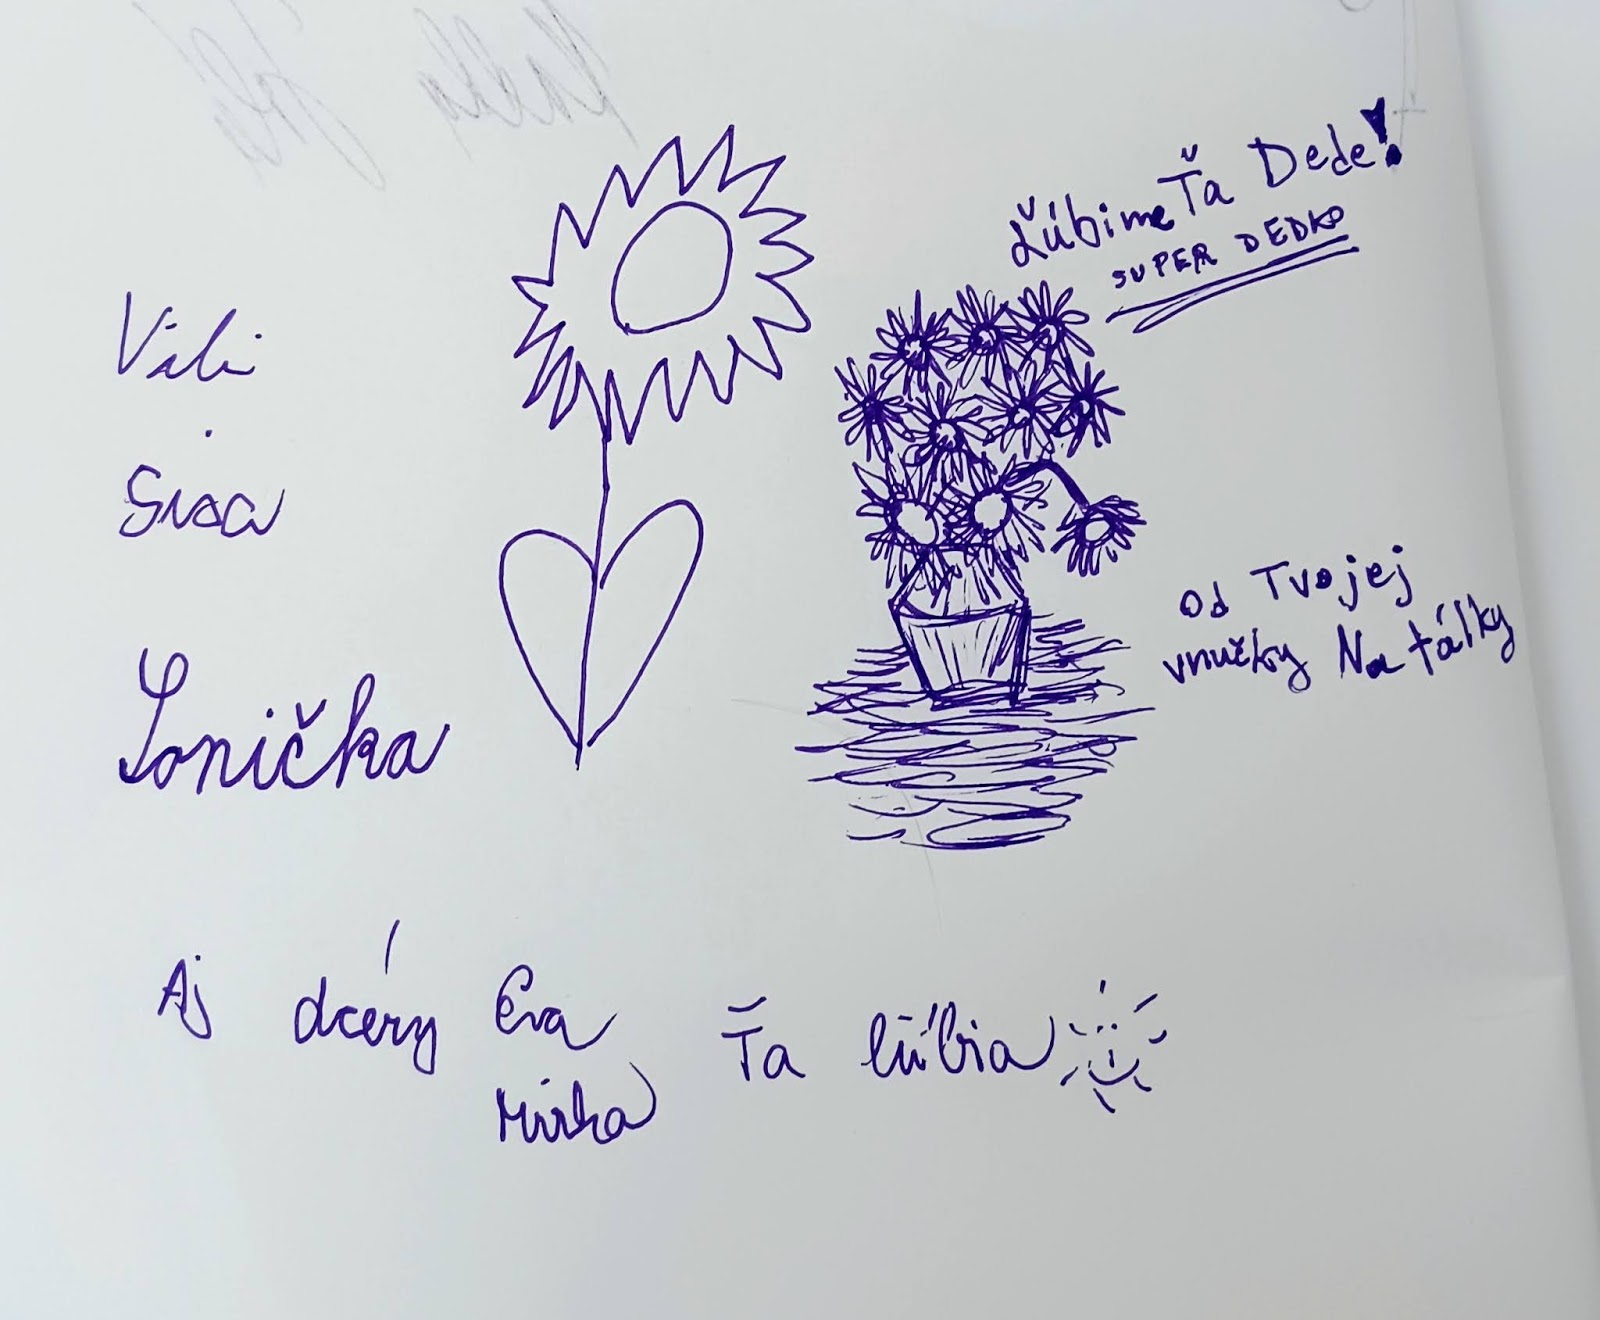 Ľúbime Ťa Dede!
SUPER DEDKO
Vili
Sisa
Sonička
Od Tvojej
vnučky Natálky
Aj dcéry Eva Ťa ľúbia
Mirka